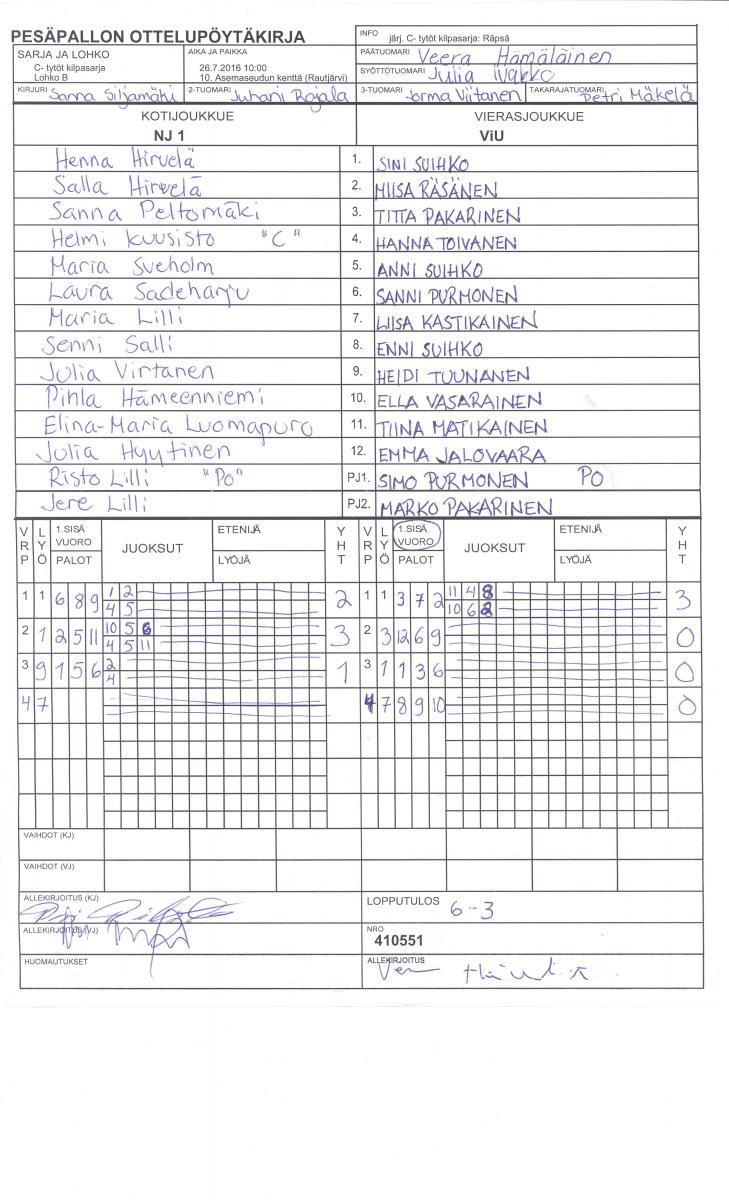 PESÄPALLON OTTELUPÖYTÄKIRJA
INFO järj. C- tytöt kilpasarja: Räpsä
SARJA JA LOHKO
C- tytöt kilpasarja
Lohko B
AIKA JA PAIKKA
26.7.2016 10:00
10. Asemaseudun kenttä (Rautjärvi)
PÄÄTUOMARI Veera Hämäläinen
SYÖTTÖTUOMARI Julia
KIRJURI Sanna Siljamäki 2-TUOMARI Juhani Rajala 3-TUOMARI Jorma Viitanen TAKARAJATUOMARI Petri Mäkelä
KOTIJOUKKUE VIERASJOUKKUE
NJ 1 ViU
Henna Hirvelä 1. SINI SUIHKO
Salla Hirvelä 2. MIISA RÄSÄNEN
Sanna Peltomäki 3. TITTA PAKARINEN
Helmi Kuusisto "C" 4. HANNA TOIVANEN
Maria Sveholm 5. ANNI SUIHKO
Laura Sadeharju 6. SANNI PURMONEN
Maria Lilli 7. LIISA KASTIKAINEN
Senni Salli 8. ENNI SUIHKO
Julia Virtanen 9. HEIDI TUUNANEN
Pihla Hämeenniemi 10. ELLA VASARAINEN
Elina-Maria Luomapuro 11. TIINA MATIKAINEN
Julia Hyytinen 12. EMMA JALOVAARA
Risto Lilli "Po" PJ1. SIMO PURMONEN PO
Jere Lilli PJ2. MARKO PAKARINEN
VRP LYÖ 1.SISÄ VUORO PALOT JUOKSUT ETENIJÄ LYÖJÄ YHT VRP LYÖ 1.SISÄ VUORO PALOT JUOKSUT ETENIJÄ LYÖJÄ YHT
1 1 6 8 9 1 2 2 1 1 3 7 2 11 4 8 3
4 5 10 6 2
2 1 2 5 11 10 5 6 3 2 3 12 6 9 0
4 5 11
3 9 1 5 6 2 1 3 1 1 3 6 0
4
4 7 4 7 8 9 10 0
VAIHDOT (KJ)
VAIHDOT (VJ)
ALLEKIRJOITUS (KJ)
LOPPUTULOS 6-3
ALLEKIRJOITUS (VJ)
NRO
410551
HUOMAUTUKSET
ALLEKIRJOITUS